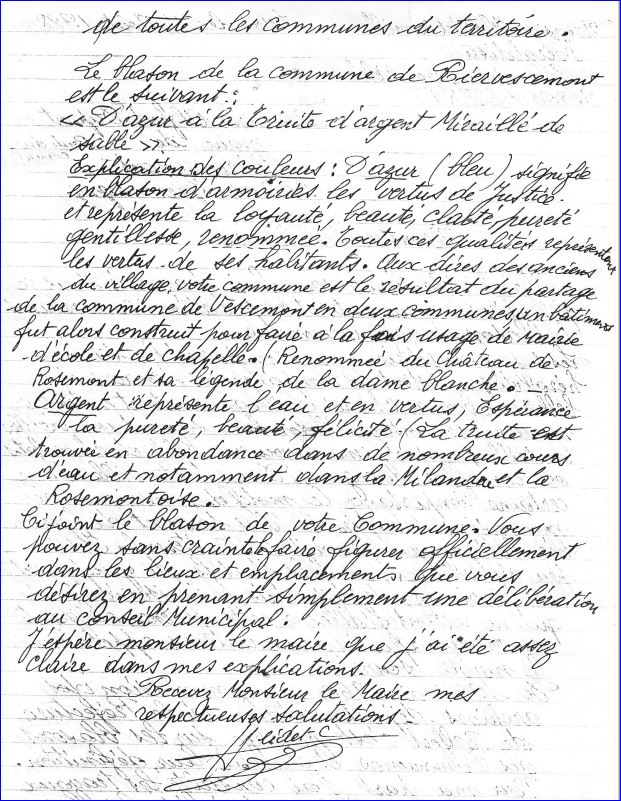 de toutes les communes du territoire.
Le blason de la commune de Riervescemont
est le suivant :
« D'azur à la Truite d'argent Miraillé de
sable »
Explication des couleurs : D'azur (bleu) signifie
en blason d'armoiries les vertus de Justice
et représente la loyauté, beauté, clarté, pureté
gentillesse, renommée. Toutes ces qualités représentent
les vertus de ses habitants. Aux dires des anciens
du village, votre commune est le résultat du partage
de la commune de Vescemont en deux communes, un bâtiment
fut alors construit pour faire à la fois usage de mairie
d'école et de chapelle. (Renommée du Château de
Rosemont et sa légende, de la dame blanche. _
Argent représente l'eau et en vertus, Espérance
la pureté, beauté, félicité (La truite est
trouvée en abondance dans de nombreux cours
d'eau et notamment dans la Milandre et la
Rosemontoise.
Ci joint le blason de votre Commune. Vous
pouvez sans crainte le faire figurer officiellement
dans les lieux et emplacements que vous
désirez en prenant simplement une délibération
au conseil Municipal.
J'espère monsieur le maire que j'ai été assez
claire dans mes explications.
Recevez Monsieur le Maire mes
respectueuses salutations